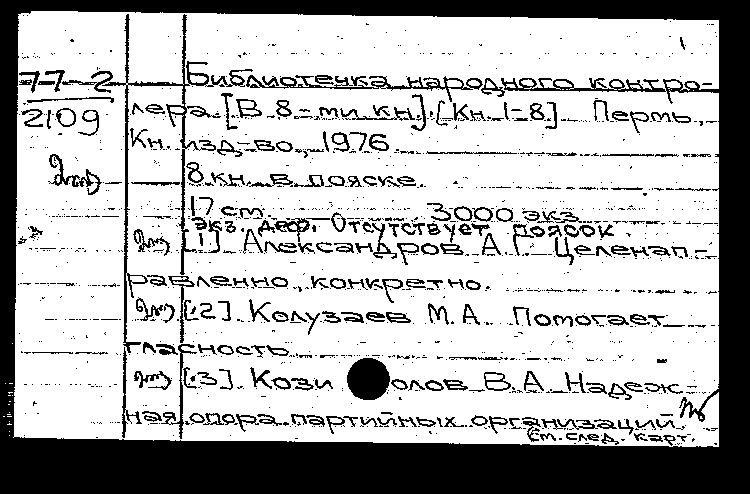 1
77-2
2109
Библиотечка народного контро-
лера. [В 8-ми кн.]. [Кн. 1-8]. Пермь,
Кн. изд-во, 1976.
8 кн. в пояске.
17 cm. 3000 экз.
экз. деф. Отсутствует поясок.
[1] Александров А.Г. Целенап-
равленно, конкретно.
[.2] Колузаев М.А. Помогает
гласность
[.3]. Кози олов В.А. Надеж-
ная опора партийных организаций.
См. след. карт.